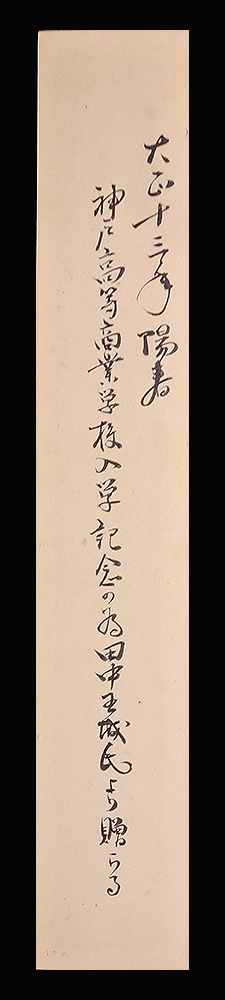 大正十三年陽春
神戸高等商業学校入学記念の為田中王城氏より贈らる